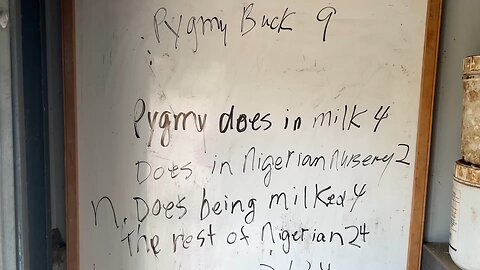 Pygmy Buck 9
Pygmy does in milk 4
Does in Nigerian Nursery 2
n. Does being milked 4
The rest of Nigerian 24